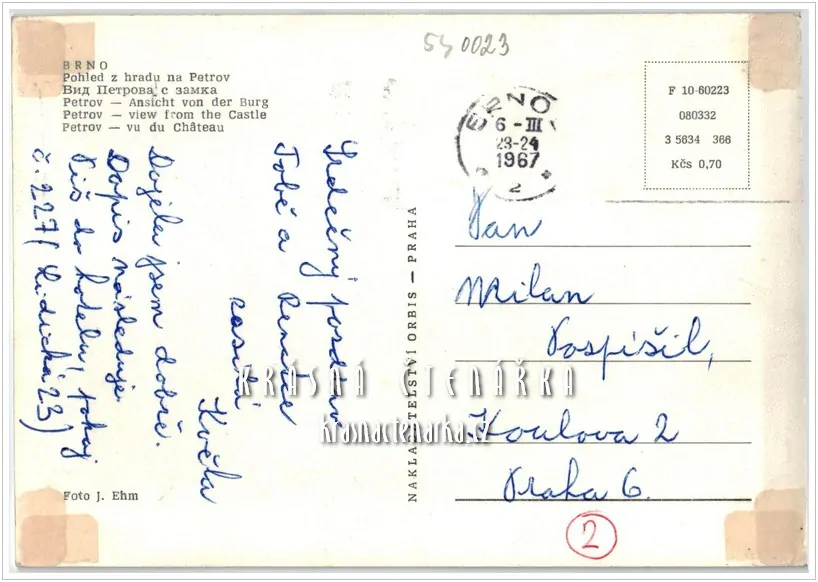 540023
BRNO
Pohled z hradu na Petrov
Вид Петрова с замка
Petrov — Ansicht von der Burg
Petrov — view from the Castle
Petrov — vu du Château
F 10-60223
080332
3 5634 366
Kčs 0,70
BRNO
6 -III
23-24
1967
2
Srdečný pozdrav
Tobě a Renatce
zasílá
Květa
Dojela jsem dobře.
Dopis následuje.
Piš do hotelu, pokoj
č. 227 (Lidická 23)
NAKLADATELSTVÍ ORBIS — PRAHA
Pan
Milan
Pospíšil,
Koulova 2
Praha 6.
2
KRÁSNÁ ČTENÁŘKA
krasnactenarka.cz
Foto J. Ehm